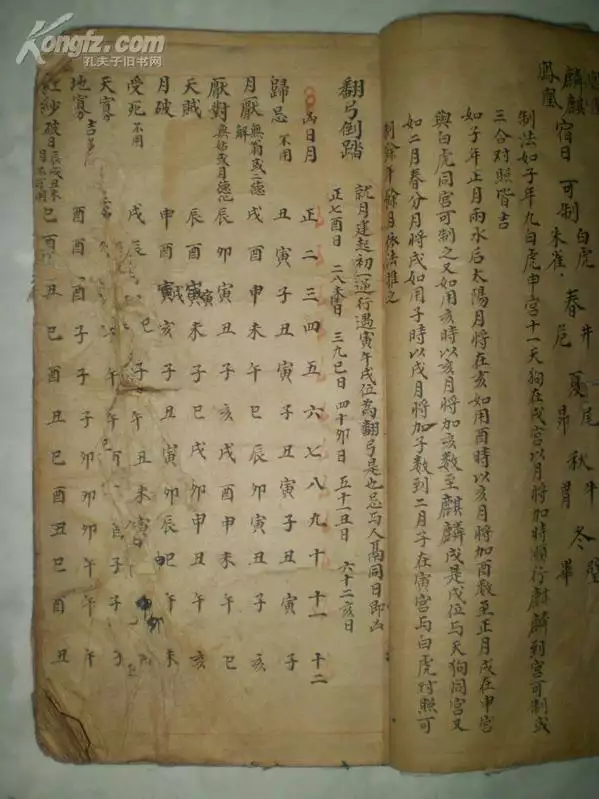 Kongfz.com
孔夫子旧书网
鳳凰
麒麟宿日可制白虎朱雀 春井尾 夏昴 秋牛胃 冬壁畢
制法如子年九白虎申宮十一天狗在戌宮以月將加時順行麒麟到宮可制或
三合對照皆吉
如子年正月雨水后太陽月將在亥如用酉時以亥月將加酉数至正月戌在申宮
與白虎同宮可制之又如用亥時以亥月將加亥数至麒麟戌是戌位与天狗同宮又
如二月春分月將戌如用子時以戌月將加子数到二月子在寅宮与白虎対照可
制餘年餘月依法推之
翻弓倒踏
就月建起初一逆行遇寅午戌位為翻弓是也忌与人髙同日即凶
正七酉日 二八未日 三九巳日 四十夘日 五十一丑日 六十二亥日
凶日月 正二三四五六七八九十十一十二
歸忌 不用 丑寅子丑寅子丑寅子丑寅子
月厭 無翁或二德解 戌酉申未午巳辰夘寅丑子亥
厭對 辰夘寅丑子亥戌酉申未午巳
天賊 辰酉寅未子巳戌夘申丑午亥
月破 申酉戌亥子丑寅夘辰巳午未
受死 不用 戌辰亥巳子午丑未寅申夘酉
天寡
地寡 酉酉酉子子子夘夘夘午午午
紅紗 巳酉丑巳酉丑巳酉丑巳酉丑